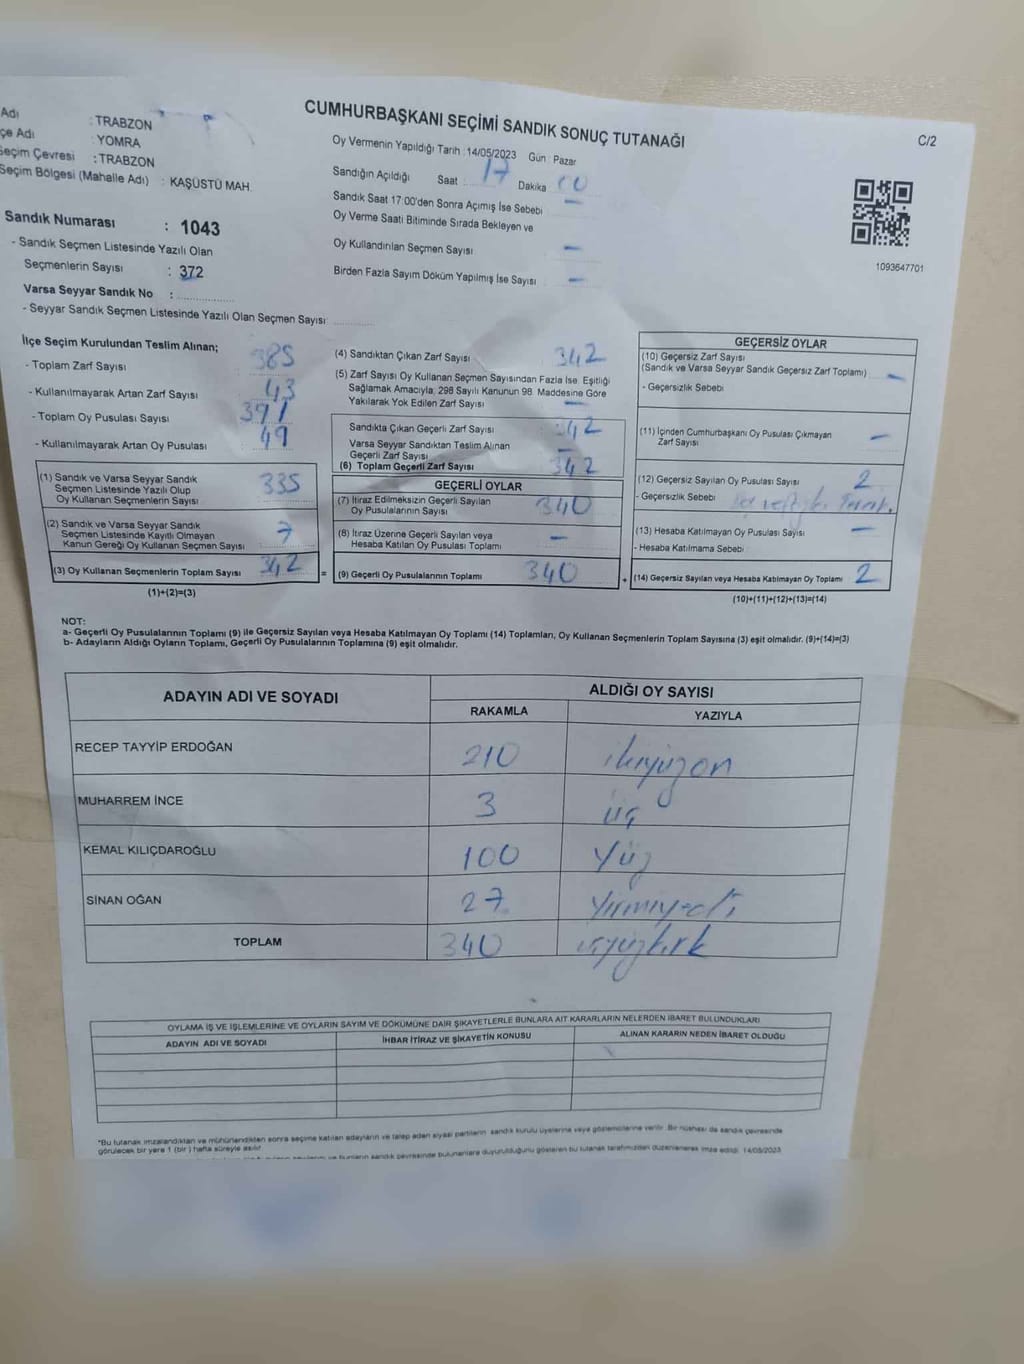 CUMHURBAŞKANI SEÇİMİ SANDIK SONUÇ TUTANAĞI
C/2
Adı : TRABZON
çe Adı : YOMRA
Seçim Çevresi : TRABZON
Seçim Bölgesi (Mahalle Adı) : KAŞÜSTÜ MAH.
Sandık Numarası : 1043
- Sandık Seçmen Listesinde Yazılı Olan
Seçmenlerin Sayısı : 372
Varsa Seyyar Sandık No :
- Seyyar Sandık Seçmen Listesinde Yazılı Olan Seçmen Sayısı:
Oy Vermenin Yapıldığı Tarih :14/05/2023 Gün : Pazar
Sandığın Açıldığı Saat : 17 Dakika : 00
Sandık Saat 17:00'den Sonra Açımış İse Sebebi : -
Oy Verme Saati Bitiminde Sırada Bekleyen ve
Oy Kullandırılan Seçmen Sayısı -
Birden Fazla Sayım Döküm Yapılmış İse Sayısı : -
1093647701
İlçe Seçim Kurulundan Teslim Alınan;
- Toplam Zarf Sayısı : 385
- Kullanılmayarak Artan Zarf Sayısı : 43
- Toplam Oy Pusulası Sayısı : 391
- Kullanılmayarak Artan Oy Pusulası : 49
(1) Sandık ve Varsa Seyyar Sandık
Seçmen Listesinde Yazılı Olup
Oy Kullanan Seçmenlerin Sayısı : 335
(2) Sandık ve Varsa Seyyar Sandık
Seçmen Listesinde Kayıtlı Olmayan
Kanun Gereği Oy Kullanan Seçmen Sayısı : 7
(3) Oy Kullanan Seçmenlerin Toplam Sayısı : 342
(1)+(2)=(3)
=
(4) Sandıktan Çıkan Zarf Sayısı : 342
(5) Zarf Sayısı Oy Kullanan Seçmen Sayısından Fazla İse, Eşitliği
Sağlamak Amacıyla, 298 Sayılı Kanunun 98. Maddesine Göre
Yakılarak Yok Edilen Zarf Sayısı : -
Sandıkta Çıkan Geçerli Zarf Sayısı : 342
Varsa Seyyar Sandıktan Teslim Alınan
Geçerli Zarf Sayısı : -
(6) Toplam Geçerli Zarf Sayısı : 342
GEÇERLİ OYLAR
(7) İtiraz Edilmeksizin Geçerli Sayılan
Oy Pusulalarının Sayısı : 340
(8) İtiraz Üzerine Geçerli Sayılan veya
Hesaba Katılan Oy Pusulası Toplamı : -
(9) Geçerli Oy Pusulalarının Toplamı : 340
+
GEÇERSİZ OYLAR
(10) Geçersiz Zarf Sayısı
(Sandık ve Varsa Seyyar Sandık Geçersiz Zarf Toplamı) : -
- Geçersizlik Sebebi :
(11) İçinden Cumhurbaşkanı Oy Pusulası Çıkmayan
Zarf Sayısı : -
(12) Geçersiz Sayılan Oy Pusulası Sayısı : 2
- Geçersizlik Sebebi :
(13) Hesaba Katılmayan Oy Pusulası Sayısı : -
- Hesaba Katılmama Sebebi :
(14) Geçersiz Sayılan veya Hesaba Katılmayan Oy Toplamı : 2
(10)+(11)+(12)+(13)=(14)
NOT:
a- Geçerli Oy Pusulalarının Toplamı (9) ile Geçersiz Sayılan veya Hesaba Katılmayan Oy Toplamı (14) Toplamları, Oy Kullanan Seçmenlerin Toplam Sayısına (3) eşit olmalıdır. (9)+(14)=(3)
b- Adayların Aldığı Oyların Toplamı, Geçerli Oy Pusulalarının Toplamına (9) eşit olmalıdır.
ADAYIN ADI VE SOYADI ALDIĞI OY SAYISI
RAKAMLA YAZIYLA
RECEP TAYYİP ERDOĞAN 210 ikiyüzon
MUHARREM İNCE 3 üç
KEMAL KILIÇDAROĞLU 100 Yüz
SİNAN OĞAN 27 Yirmiyedi
TOPLAM 340 üçyüzkırk
OYLAMA İŞ VE İŞLEMLERİNE VE OYLARIN SAYIM VE DÖKÜMÜNE DAİR ŞİKAYETLERLE BUNLARA AİT KARARLARIN NELERDEN İBARET BULUNDUKLARI
ADAYIN ADI VE SOYADI İHBAR İTİRAZ VE ŞİKAYETİN KONUSU ALINAN KARARIN NEDEN İBARET OLDUĞU
*Bu tutanak imzalandıktan ve mühürlendikten sonra seçime katılan adayların ve talep eden siyasi partilerin sandık kurulu üyelerine veya gözlemcilerine verilir. Bir nüshası da sandık çevresinde
görülecek bir yere 1 (bir) hafta süreyle asılır.
ve bunların sandık çevresinde bulunanlara duyurulduğunu gösteren bu tutanak tarafımızdan düzenlenerek imza edildi. 14/05/2023